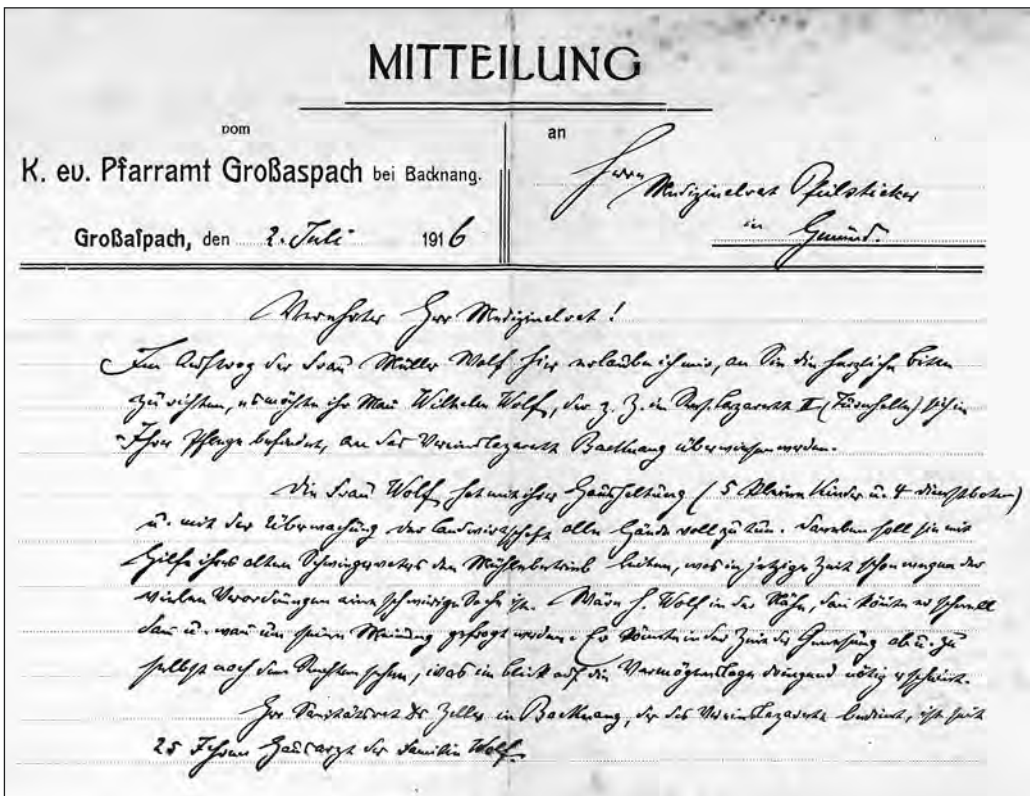 MITTEILUNG
vom
K. ev. Pfarramt Großaspach bei Backnang.
Großaspach, den 2. Juli 1916
an
Herrn
Medizinalrat Pfeilsticker
in Gmünd.
Verehrter Herr Medizinalrat!
Im Auftrag der Frau Müller Wolf hier erlaube ich mir, an Sie die herzliche Bitte
zu richten, es möchte ihr Mann Wilhelm Wolf, der z. Z. im Res. Lazarett II (Turnhalle) sich in
Ihrer Pflege befindet, an das Vereinslazarett Backnang überwiesen werden.
Die Frau Wolf hat mit ihrer Haushaltung (5 kleine Kinder u. 4 Dienstboten)
u. mit der Überwachung der Landwirtschaft alle Hände voll zu tun. Daneben soll sie mit
Hilfe ihres alten Schwiegervaters den Mühlebetrieb leiten, was in jetziger Zeit schon wegen der
vielen Verordnungen eine schwierige Sache ist. Wäre H. Wolf in der Nähe, dann könnte er schnell
dann u. wann um seine Meinung gefragt werden. Er könnte in der Zeit der Genesung ab u. zu
selbst nach dem Rechten sehen, was im Blick auf die Vermögenslage dringend nötig erscheint.
Herr Sanitätsrat Dr. Zeller in Backnang, der das Vereinslazarett bedient, ist seit
25 Jahren Hausarzt der Familie Wolf.